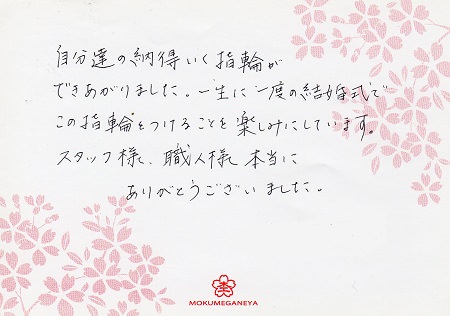 自分達の納得いく指輪が
できあがりました。一生に一度の結婚式で
この指輪をつけることを楽しみにしています。
スタッフ様、職人様 本当に
ありがとうございました。
MOKUMEGANEYA